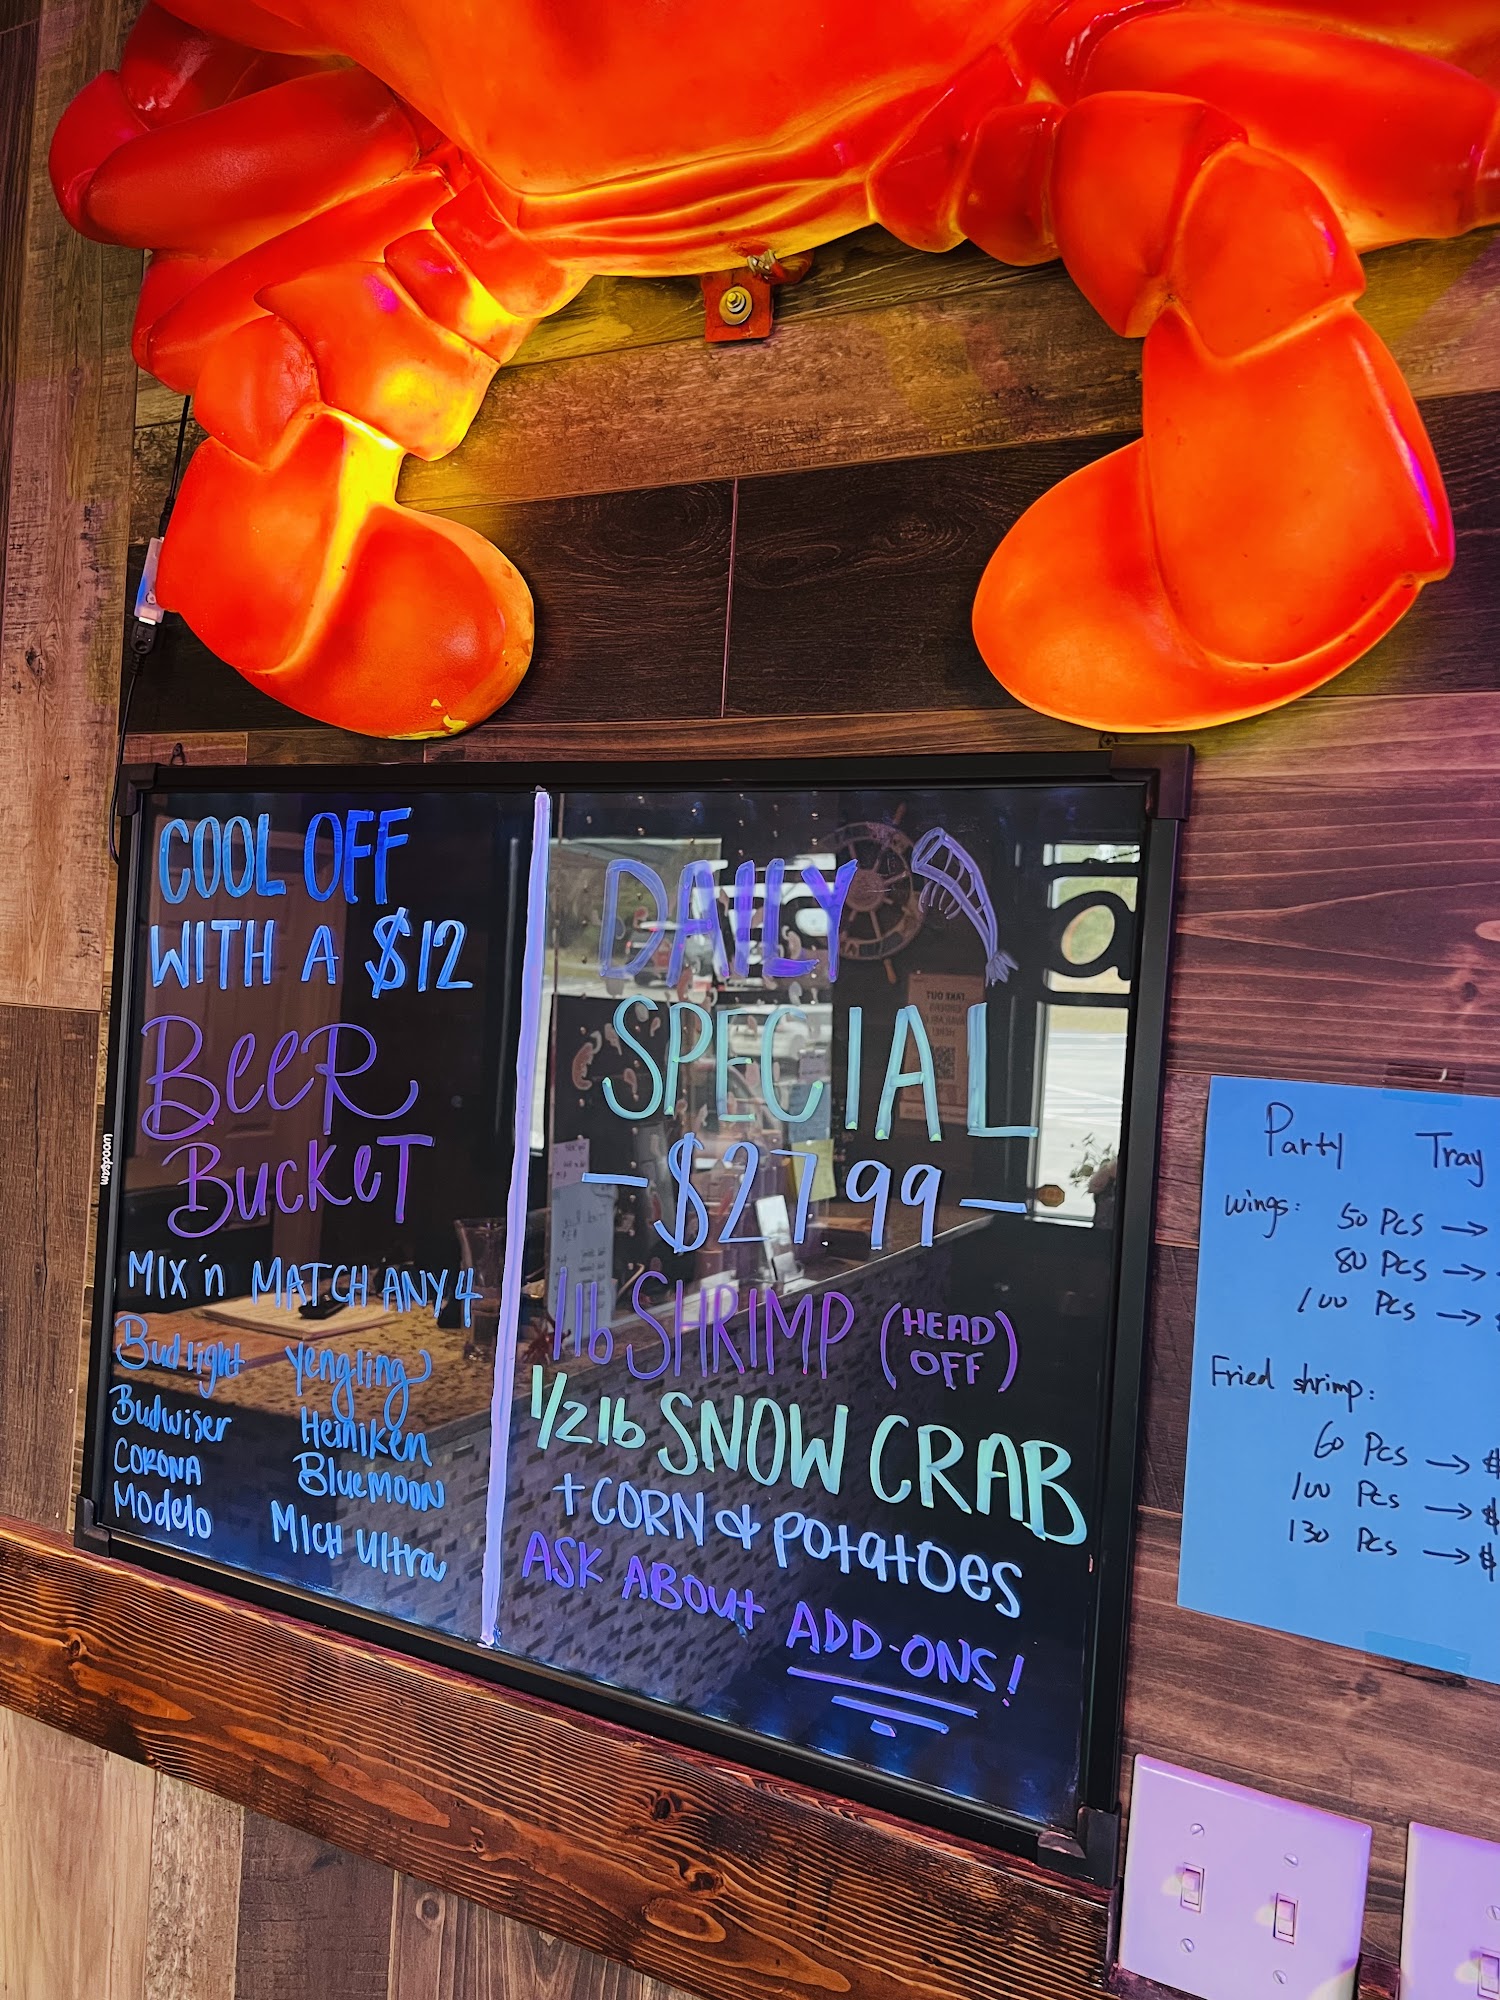 COOL OFF
WITH A $12
BEER
BUCKET
MIX 'n MATCH ANY 4
Budlight Yengling
Budwiser Heiniken
CORONA Bluemoon
Modelo Mich Ultra
DAILY
SPECIAL
- $27.99 -
1lb SHRIMP (HEAD OFF)
1/2 lb SNOW CRAB
+ CORN & Potatoes
ASK ABOUT ADD-ONS!
woodsam
Party Tray
wings: 50 Pcs →
80 Pcs →
100 Pcs →
Fried shrimp:
60 Pcs → $
100 Pcs → $
130 Pcs → $
TAKE OUT